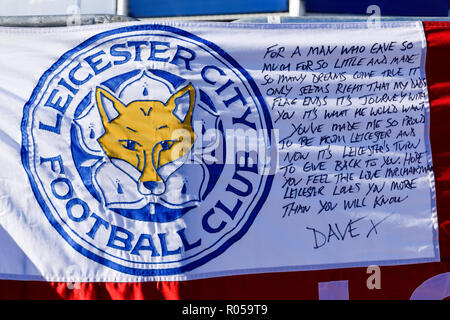 LEICESTER CITY
FOOTBALL CLUB
FOR A MAN WHO GAVE SO
MUCH FOR SO LITTLE AND MADE
SO MANY DREAMS COME TRUE IT
ONLY SEEMS RIGHT THAT MY DADS
FLAG ENDS IT'S JOURNEY WITH
YOU IT'S WHAT HE WOULD WANT
YOU'VE MADE ME SO PROUD
TO BE FROM LEICESTER AND
NOW IT'S LEICESTER'S TURN
TO GIVE BACK TO YOU. I HOPE
YOU FEEL THE LOVE MR CHAIRMAN
LEICESTER LOVES YOU MORE
THAN YOU WILL KNOW
DAVE X
alamy
Image ID: R05ST9
www.alamy.com